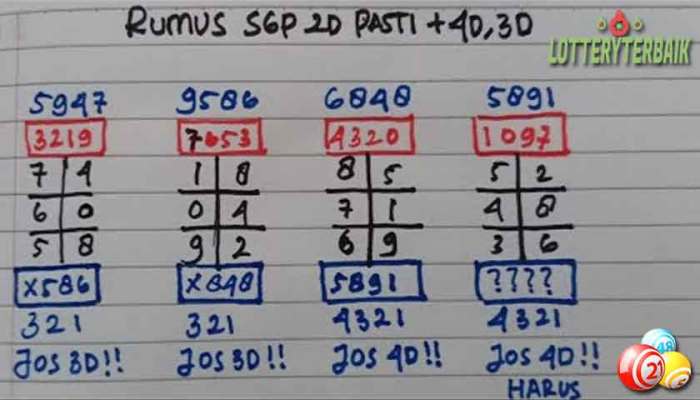 RUMUS SGP 2D PASTI + 4D, 3D
LOTTERYTERBAIK
5947 9586 6848 5891
3219 7653 4320 1097
7 4 1 8 8 5 5 2
6 0 0 4 7 1 4 8
5 8 9 2 6 9 3 6
X586 X848 5891 ????
321 321 4321 4321
JOS 3D!! JOS 3D!! JOS 4D!! JOS 4D!!
HARUS
48
21